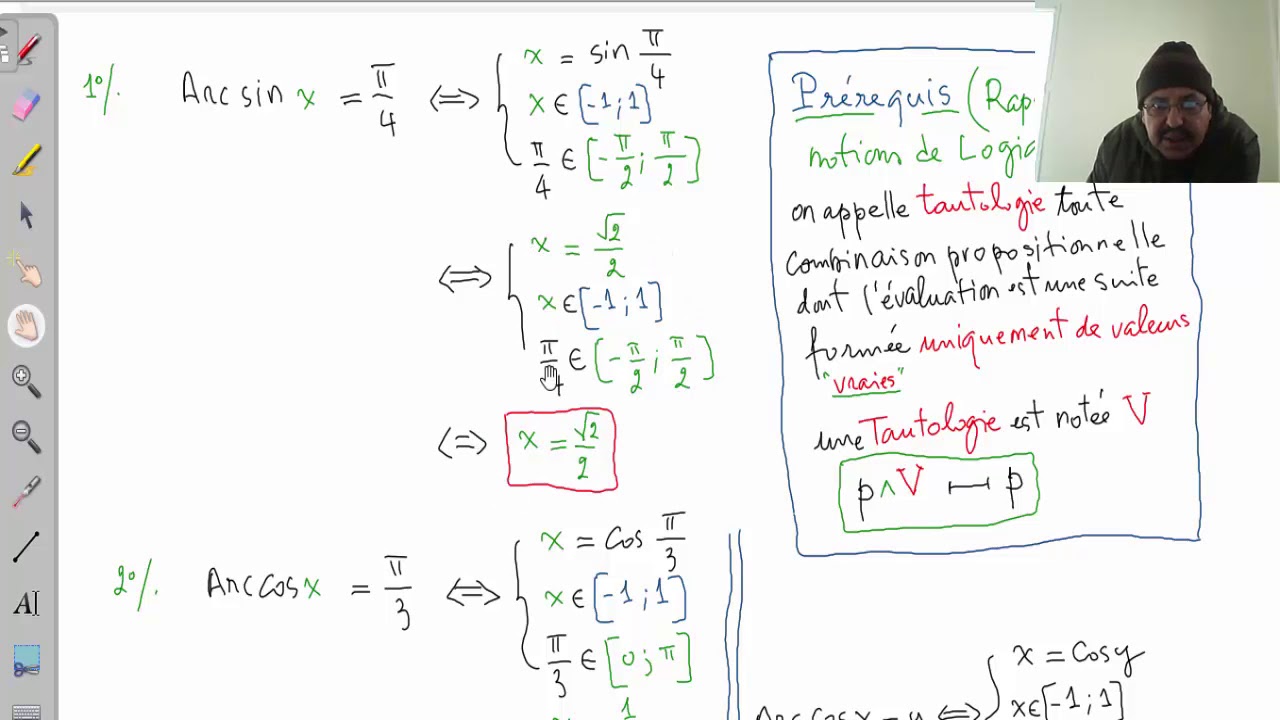 1°/. Arcsin x = π/4 ⟺ { x = sin π/4
x ∈ [-1 ; 1]
π/4 ∈ [-π/2 ; π/2]
⟺ { x = √2/2
x ∈ [-1 ; 1]
π/4 ∈ [-π/2 ; π/2]
⟺ x = √2/2
2°/. Arccos x = π/3 ⟺ { x = cos π/3
x ∈ [-1 ; 1]
π/3 ∈ [0 ; π]
Prérequis (
notions de
on appelle tautologie toute
combinaison propositionnelle
dont l'évaluation est une suite
formée uniquement de valeurs
"vraies"
une Tautologie est notée V
p ∧ V ⟼ p
⟺ { x = cos y
x ∈ [-1 ; 1]
AI